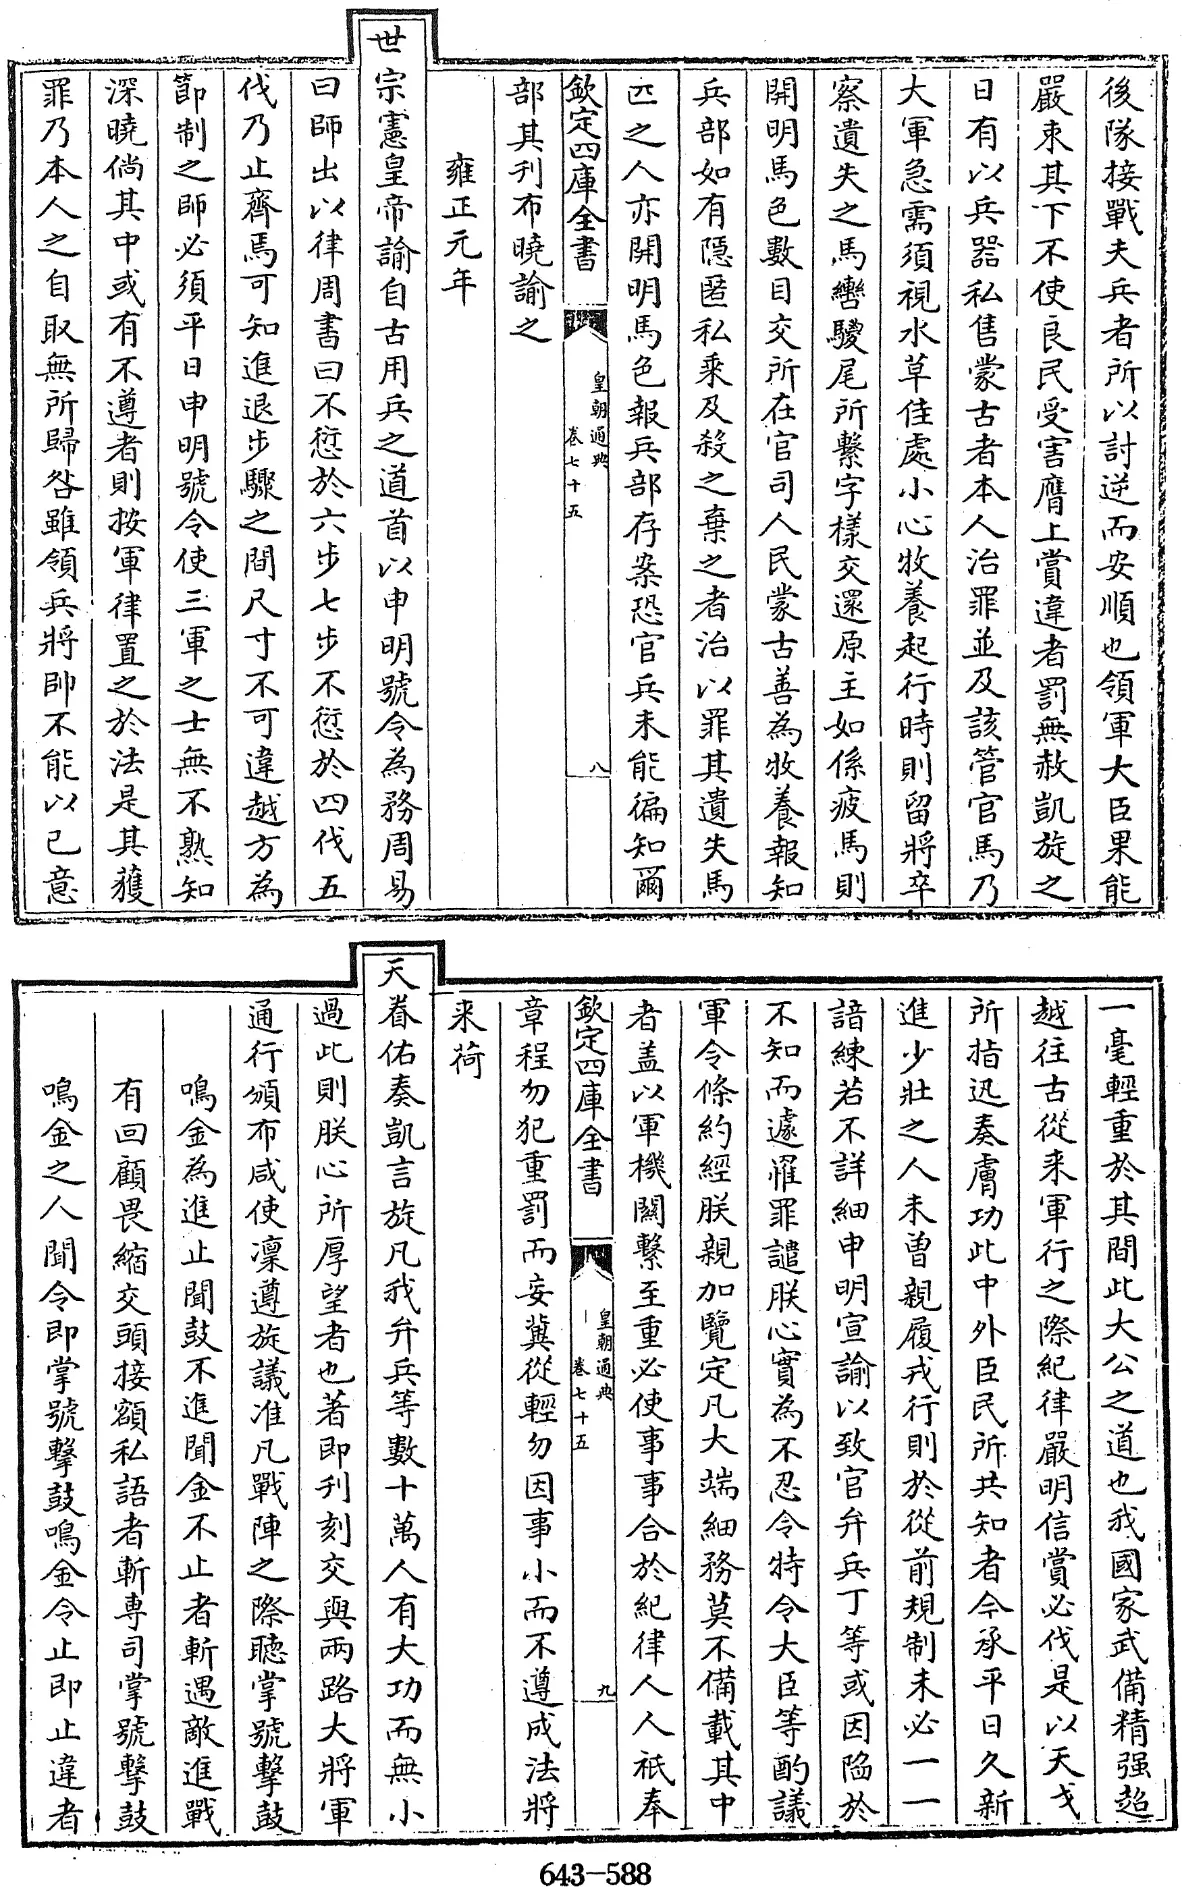 後隊接戰夫兵者所以討逆而安順也領軍大臣果能
嚴束其下不使良民受害膺上賞違者罰無赦凱旋之
日有以兵器私售蒙古者本人治罪並及該管官馬乃
大軍急需須視水草佳處小心牧養起行時則留將卒
察遺失之馬轡騣尾所繫字樣交還原主如係疲馬則
開明馬色數目交所在官司人民蒙古善為牧養報知
兵部如有隱匿私乘及殺之棄之者治以罪其遺失馬
匹之人亦開明馬色報兵部存案恐官兵未能徧知爾
欽定四庫全書
皇朝通典
卷七十五
八
部其刊布曉諭之
雍正元年
世宗憲皇帝諭自古用兵之道首以申明號令為務周易
曰師出以律周書曰不愆於六步七步不愆於四伐五
伐乃止齊焉可知進退步驟之間尺寸不可違越方為
節制之師必須平日申明號令使三軍之士無不熟知
深曉倘其中或有不遵者則按軍律置之於法是其獲
罪乃本人之自取無所歸咎雖領兵將帥不能以已意
一毫輕重於其間此大公之道也我國家武備精强超
越往古從来軍行之際紀律嚴明信賞必伐是以天戈
所指迅奏膚功此中外臣民所共知者今承平日久新
進少壯之人未曾親履戎行則於從前規制未必一一
諳練若不詳細申明宣諭以致官弁兵丁等或因陷於
不知而遽罹罪譴朕心實為不忍令特令大臣等酌議
軍令條約經朕親加覽定凡大端細務莫不備載其中
者盖以軍機關繫至重必使事事合於紀律人人祇奉
欽定四庫全書
皇朝通典
卷七十五
九
章程勿犯重罰而妄冀從輕勿因事小而不遵成法將
来荷
天眷佑奏凱言旋凡我弁兵等數十萬人有大功而無小
過此則朕心所厚望者也著即刊刻交與兩路大將軍
通行頒布咸使凜遵旋議准凡戰陣之際聽掌號擊鼓
鳴金為進止聞鼓不進聞金不止者斬遇敵進戰
有回顧畏縮交頭接額私語者斬専司掌號擊鼓
鳴金之人聞令即掌號擊鼓鳴金令止即止違者
643-588